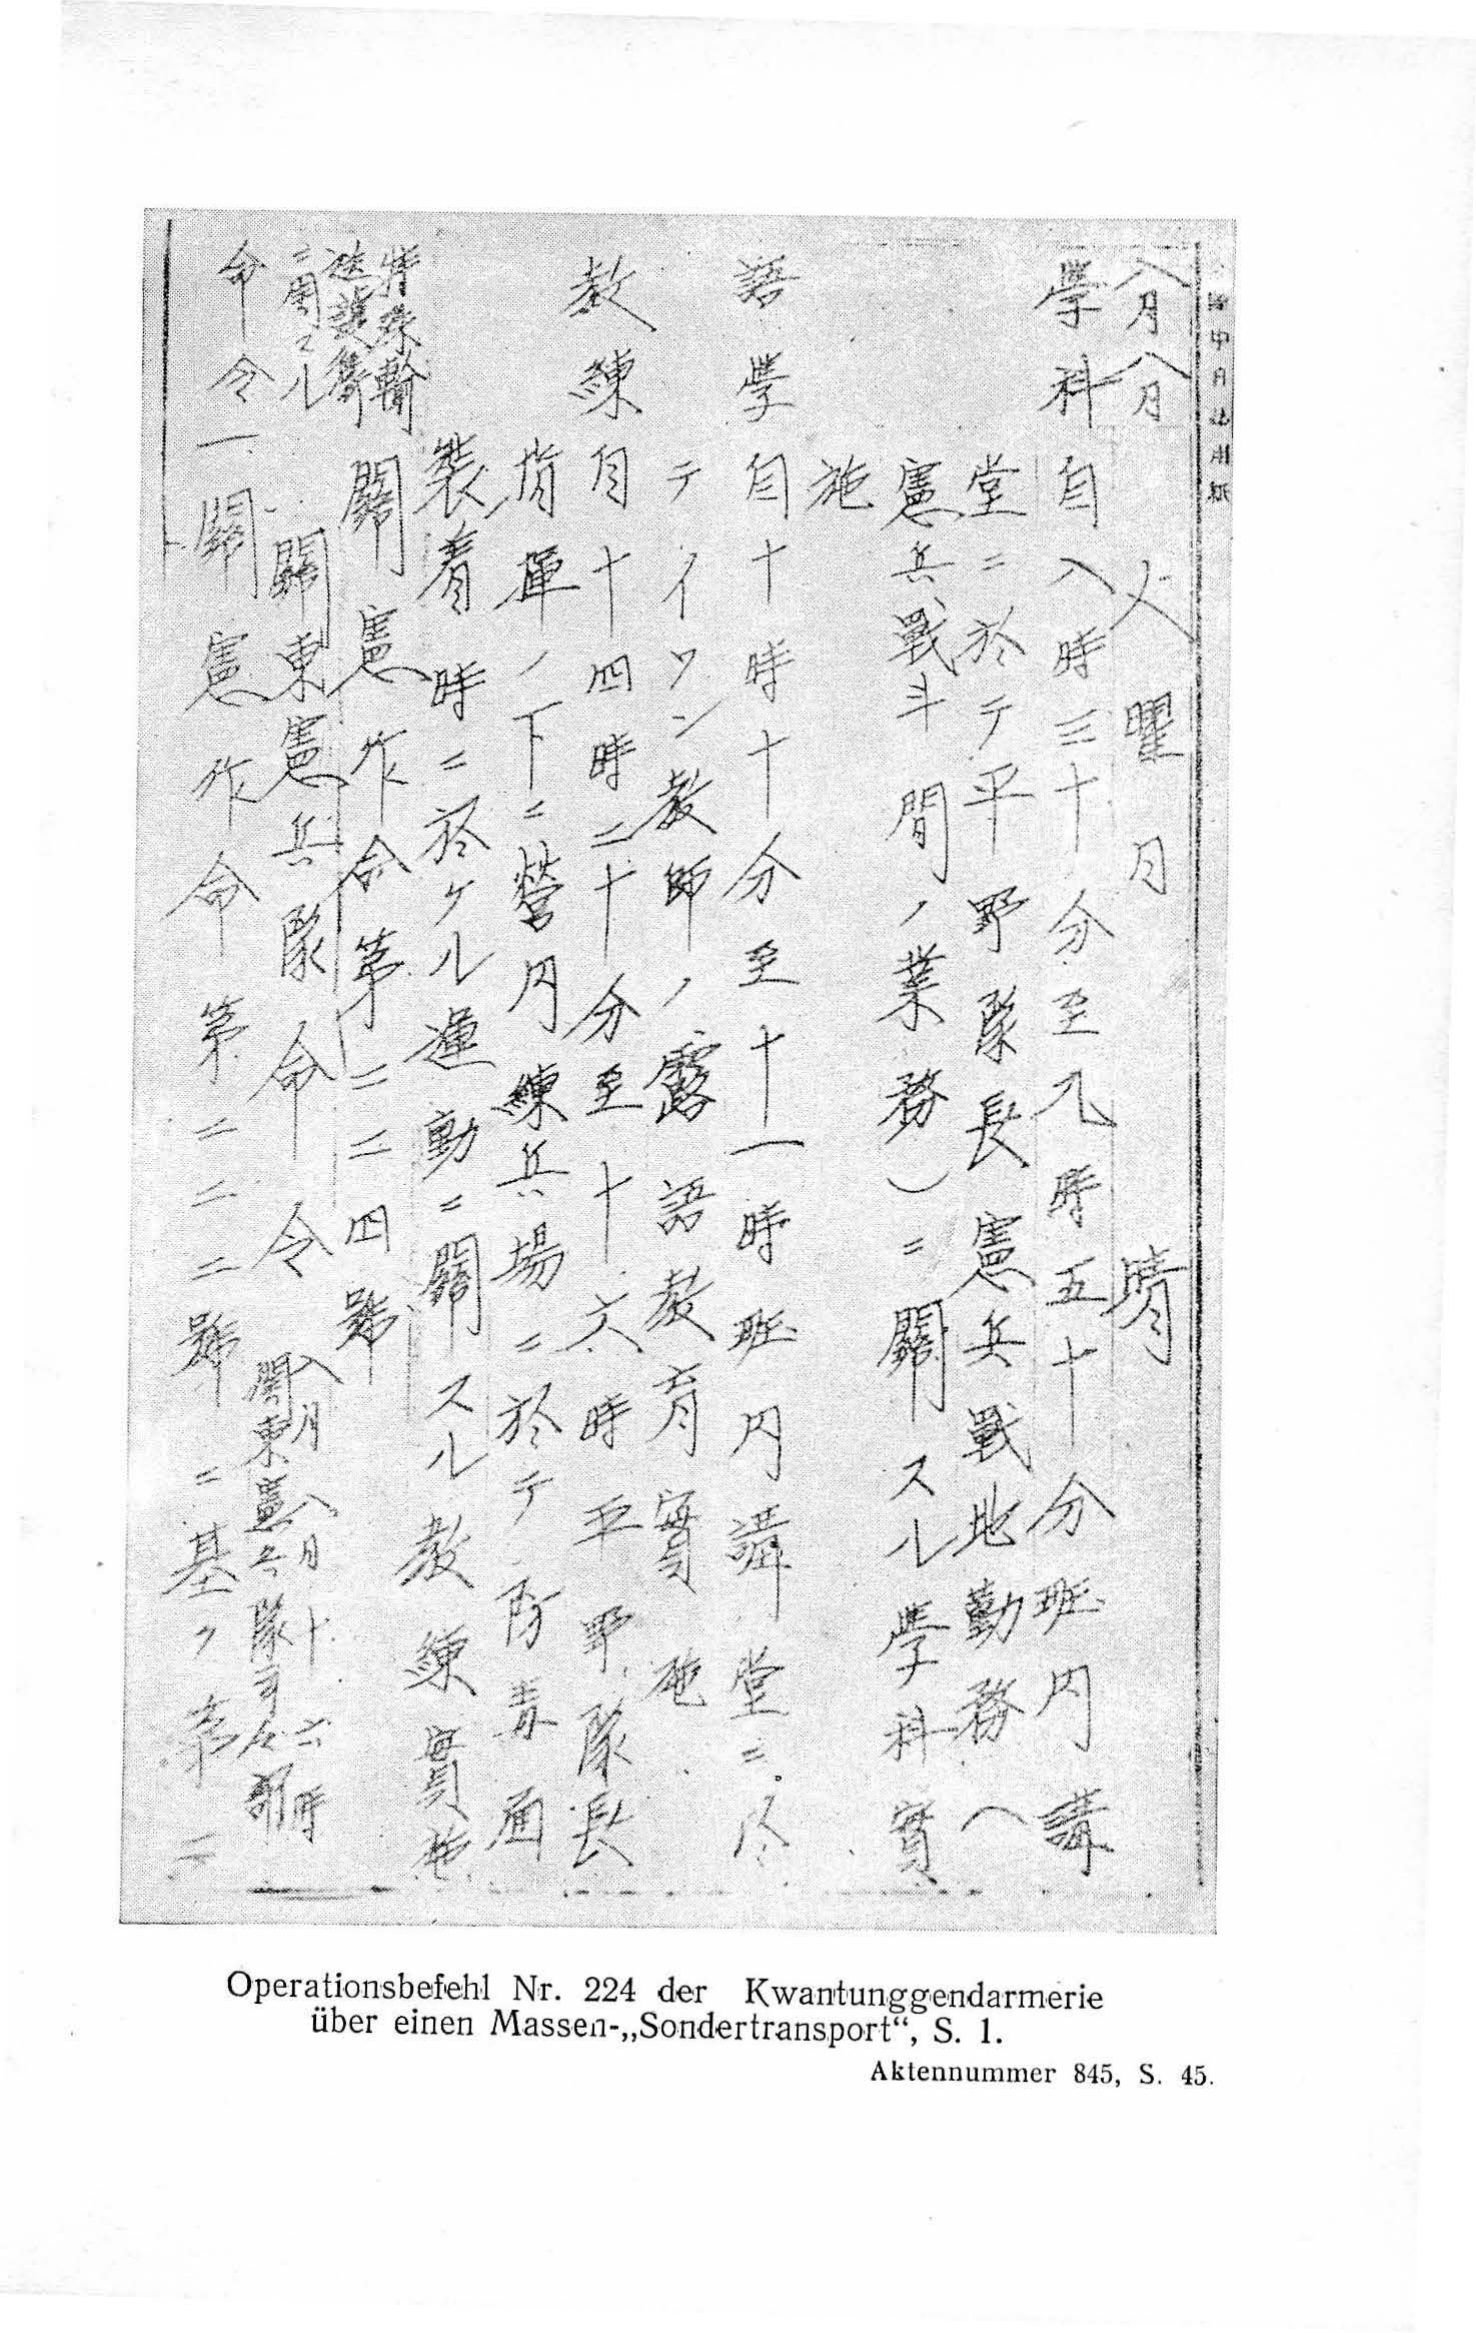 中日誌用紙
八月八日 火曜日 晴
學科 自八時三十分至九時五十分班内講
堂ニ於テ平野隊長憲兵戰地勤務(
憲兵戰斗間ノ業務)ニ關スル學科實
施
語學 自十時十分至十一時班内講堂ニ於
テイワン教師ノ露語教育實施
教練 自十四時二十分至十六時平野隊長
指揮ノ下ニ營内練兵場ニ於テ防毒面
装着時ニ於ケル運動ニ關スル教練實施
特殊輸
送護衛
ニ関スル
命令
關憲作命第二二四號
關東憲兵隊命令 八月八日十六時
關東憲兵隊司令部
一、關憲作命第二二二號ニ基ク第二
Operationsbefehl Nr. 224 der Kwantunggendarmerie
über einen Massen-„Sondertransport“, S. 1.
Aktennummer 845, S. 45.